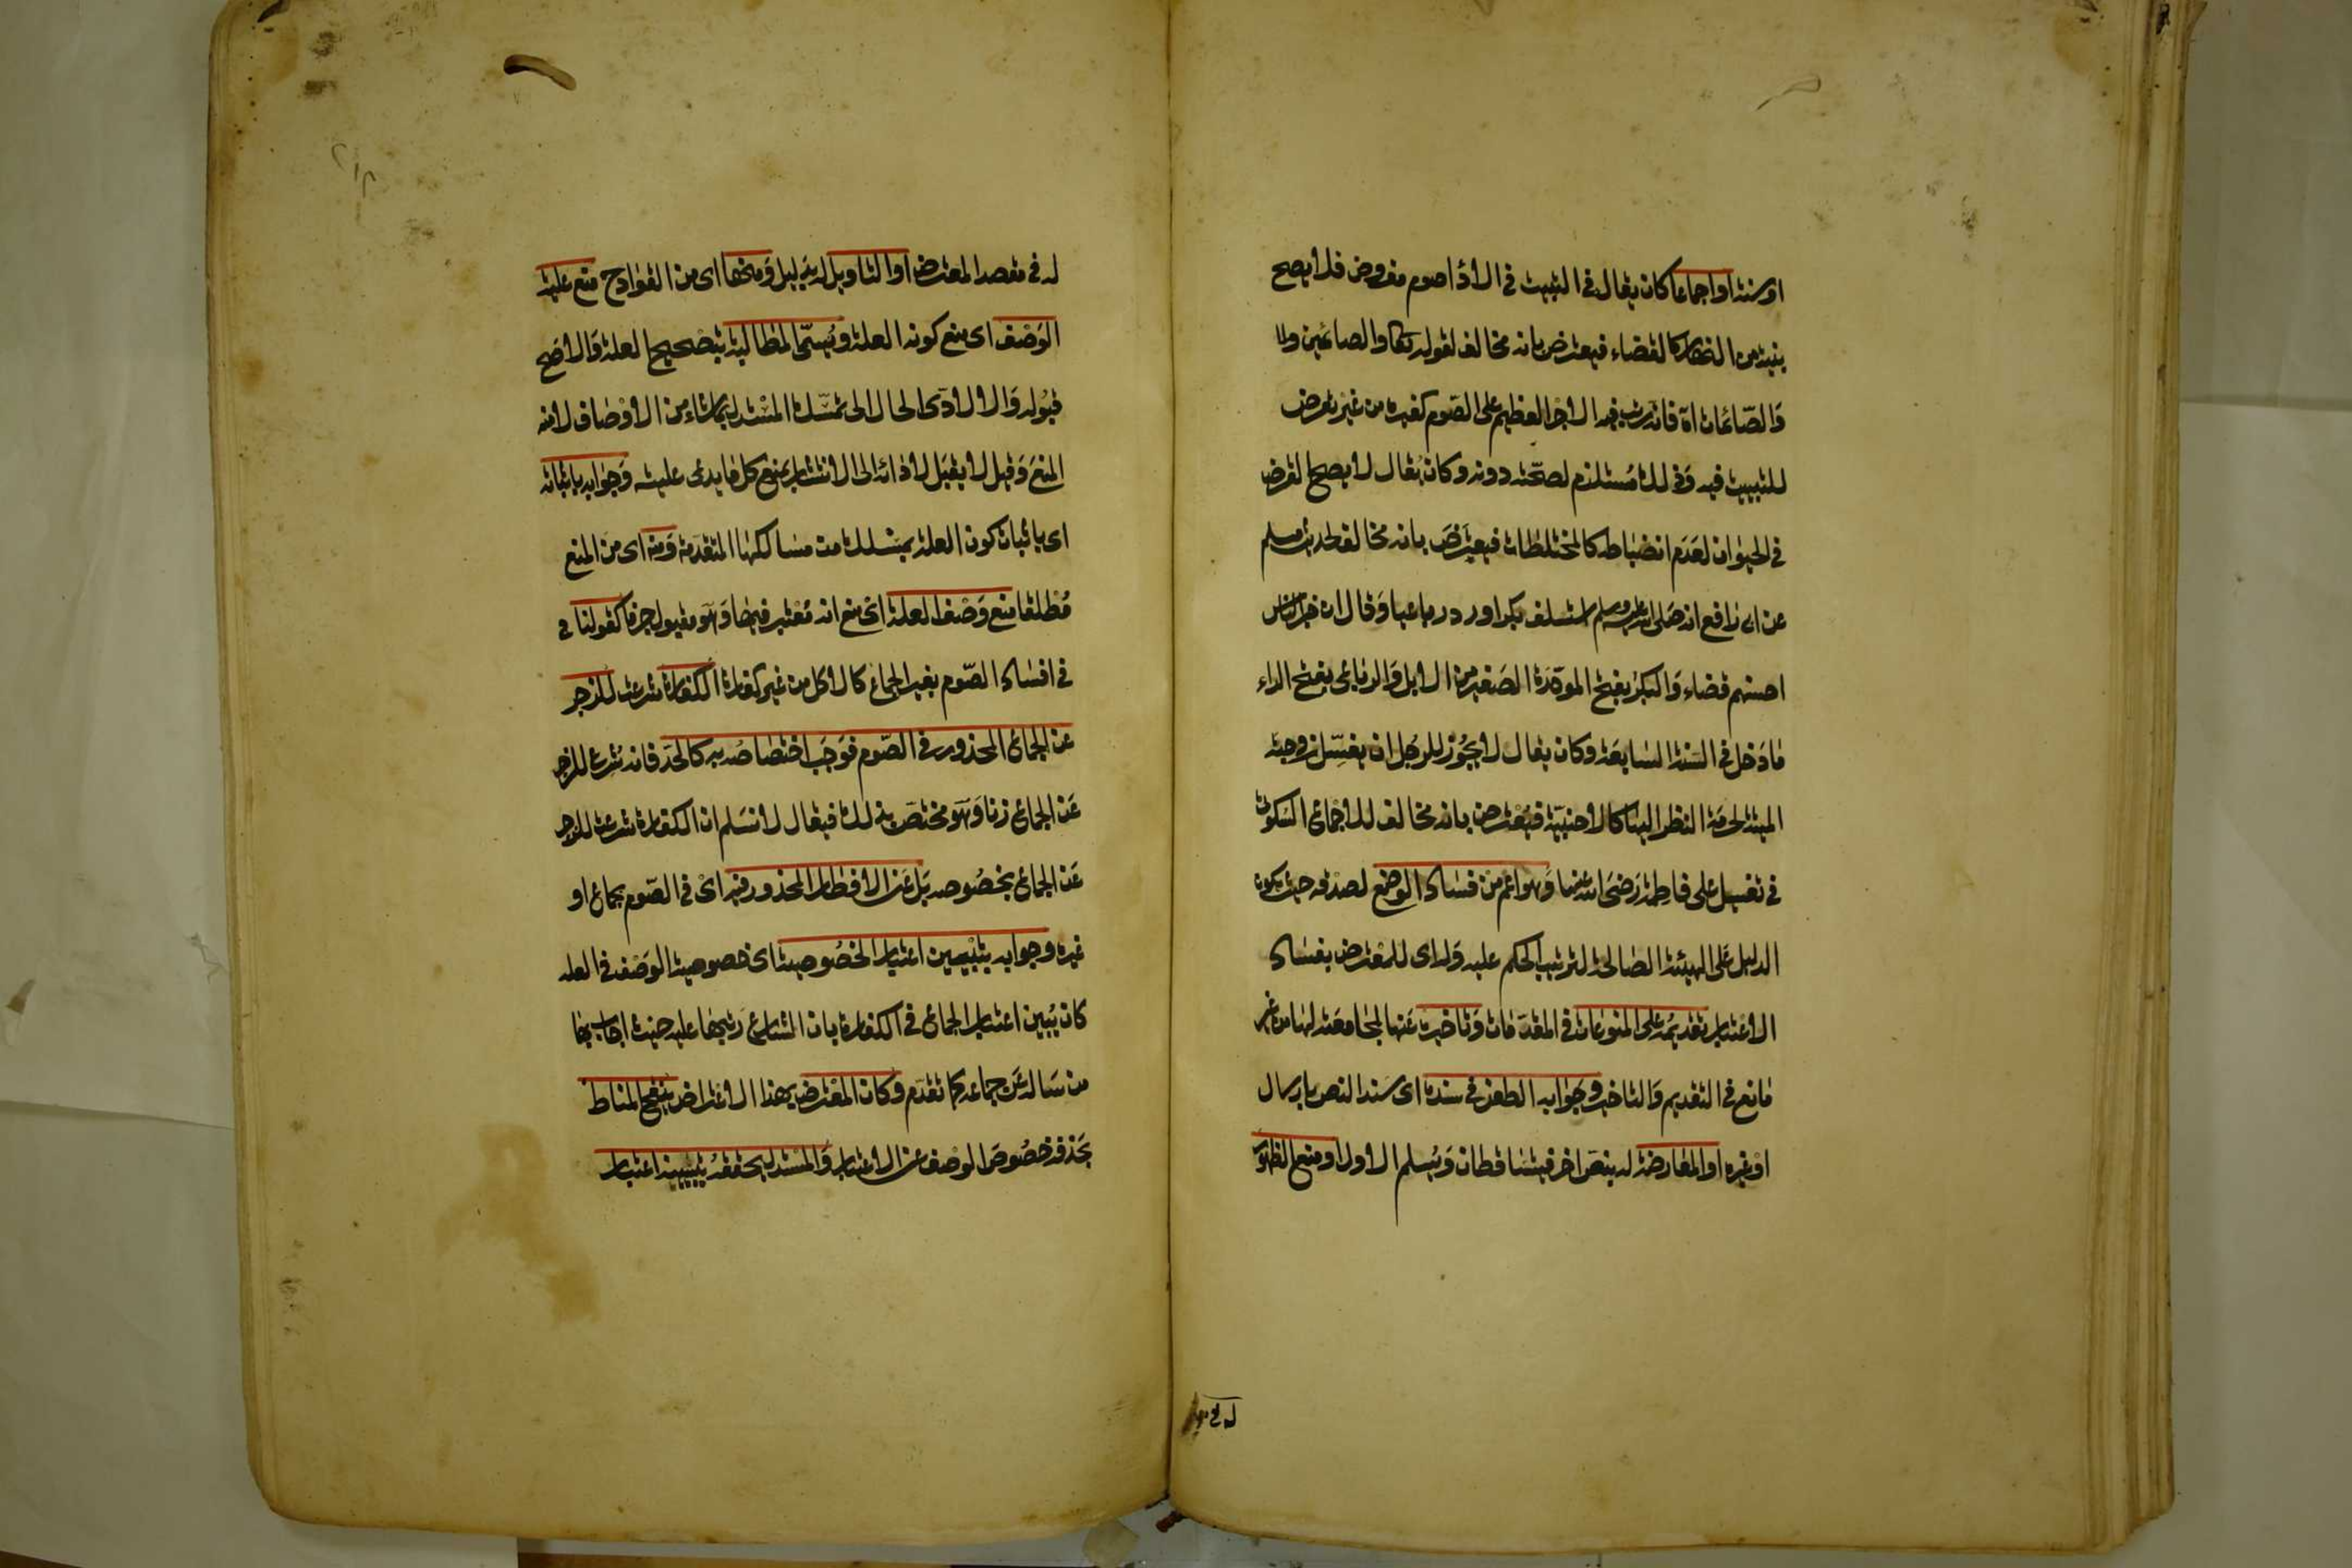 او سنة او اجماعا كان يقال في التبييت في الاداء صوم مفروض فلا يصح
بنية من النهار كالقضاء فيعترض بانه مخالف لقوله تعالى والصائمين والا
وَالصّائمات اه فانه رتب فيه الاجر العظيم على الصّوم كغيره من غير تعرض
للتبييت فيه وَذلك مُستلزم لصحّته دونه وكان يُقال لا يصح القرض
في الحيوان لعَدَم انضباطه كالمختلطات فيعترضَ بانه مخالف لحديث مسلم
عن ابى رافع انه صَلى الله عليه وسلم استسلف بكرا ورد رباعيا وَقال ان خيار الناس
احسنهم قضاء وَالبكر بفتح الموحّدة الصَغير من الابل وَالرباعى بفتح الراء
مادَخل في السّنة السّابعَة وكان يقال لا يجُوز للرجُل ان يغسّل زوجته
الميتة لحرمَة النظر اليها كالاجنبيّة فيُعْترض بانه مخالف للاجماع السّكوتي
في تغسيل على فاطِمة رَضىَ الله عنها وَهو اعم من فساد الوضع لصدقه حيث يكون
الدليل عَلى الهيئة الصَالحة لترتيب الحكم عليه وَله اى للمعْترض بفساد
الاعْتبار تقديمُه على المنوعَات في المقدّمات وَتاخيره عَنها لمجامعَته لها من غير
مانع في التقديم وَالتاخير وَجَوابه الطعن في سنده اى سَند النص بارسال
اوْ غيره او المعَارضة له بنصّ اخر فيتسَاقطان وَيُسلم الاول او منع الظهور
له في مقصد
له في مقصد المعترض او التاويل له بدليل وَمنها اى من القوادح منع علية
الوَصْف اى منع كونه العلة ويُسمّى المطالبة بتصْحيح العلة وَالاصَح
قبُوله وَالا لادّى الحال الى تمسّك المسْتدل بما شاء من الاوْصَاف لامنه
المنعَ وَقيل لا يقبَل لادائه الى الانتشار بمنع كل ما يدعى عليته وَجوابه باثباته
اى باثبات كون العلة بمسْلك من مسَالكها المتقدّمة وَمنه اى من المنع
مُطلقا منع وَصْف العلة اى منع انه مُعْتبر فيها وَهوَ مقبول جزما كقولنا في
في افسَاد الصّوم بغير الجماع كالاكل من غير كفارة الكفارة شرعت للزجر
عن الجماع المحذور في الصّوم فوَجَب اختصَاصُه به كالحَد فانه شُرع للزجر
عَن الجماع زنا وَهوَ مختصّ بذلك فيقال لا نسَلم ان الكفارة شرعت للزجر
عَن الجماع بخصُوصه بَل عَن الافطار المحذور فيه اىْ في الصّوم بجماع او
غيره وجوابه بتبْيين اعتبار الخصُوصية اى خصوصية الوَصْف في العلة
كان يُبين اعتبار الجماع في الكفارة بان الشارع رَتبها عليه حيث اجاب بها
من سَاله عَن جماعه كما تقدّم وكان المعْترض بهذا الاعْتراض ينقح المناط
بحَذفه خصُوصَ الوصف عن الاعتبار وَالمسْتدل يحققهُ بتبيينه اعتبار